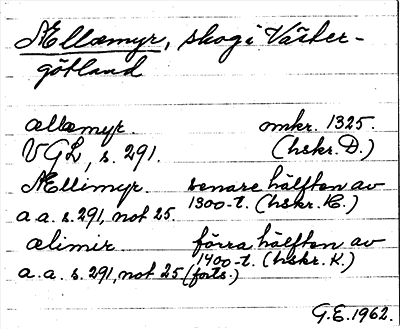 Ællæmyr, skog i Väster-
götland
ællæmyr. omkr. 1325.
VGL, s. 291. (hskr. D.)
Ællimyr. senare hälften av
a.a. s. 291, not 25. 1300-t. (hskr. E.)
ælimir förra hälften av
1400-t. (hskr. K.)
a.a. s. 291, not 25 (forts.)
G.E. 1962.